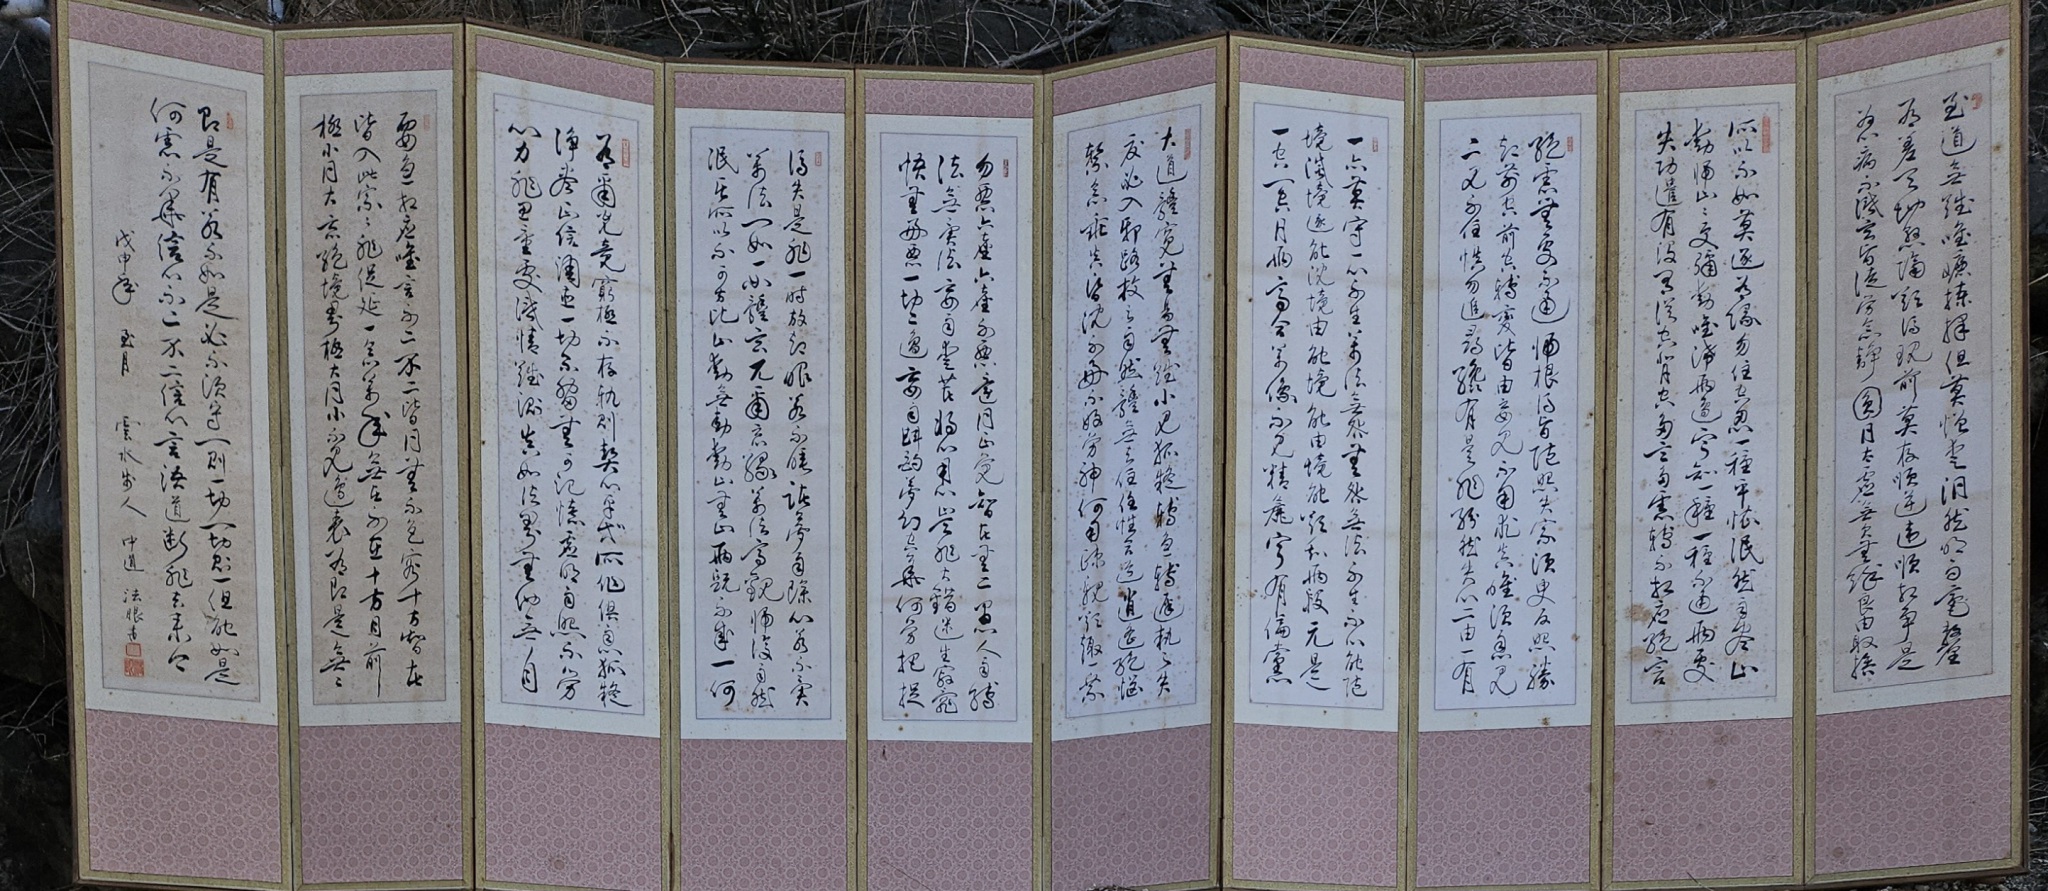 至道無難唯嫌揀擇但莫憎愛洞然明白毫釐
有差天地懸隔欲得現前莫存順逆違順相爭是
為心病不識玄旨徒勞念靜圓同太虛無欠無餘良由取捨
所以不如莫逐有緣勿住空忍一種平懷泯然自盡止
動歸止止更彌動唯滯兩邊寧知一種一種不通兩處
失功遣有沒有從空背空多言多慮轉不相應絕言
絕慮無處不通歸根得旨隨照失宗須臾反照勝
却前空前空轉變皆由妄見不用求真唯須息見
二見不住慎勿追尋纔有是非紛然失心二由一有
一亦莫守一心不生萬法無咎無咎無法不生不心能隨
境滅境逐能沈境由能境能由境能欲知兩段元是
一空一空同兩齊含萬像不見精麤寧有偏黨
大道體寬無易無難小見狐疑轉急轉遲執之失
度必入邪路放之自然體無去住任性合道逍遙絕惱
繫念乖真昏沈不好不好勞神何用疎親欲趣一乘
勿惡六塵六塵不惡還同正覺智者無為愚人自縛
法無異法妄自愛著將心用心豈非大錯迷生寂亂
悟無好惡一切二邊妄自斟酌夢幻空華何勞把捉
得失是非一時放却眼若不睡諸夢自除心若不異
萬法一如一如體玄兀爾忘緣萬法齊觀歸復自然
泯其所以不可方比止動無動動止無止兩既不成一何
有爾究竟窮極不存軌則契心平等所作俱息狐疑
淨盡正信調直一切不留無可記憶虛明自照不勞
心力非思量處識情難測真如法界無他無自
要急相應唯言不二不二皆同無不包容十方智者
皆入此宗宗非促延一念萬年無在不在十方目前
極小同大忘絕境界極大同小不見邊表有即是無無
即是有若不如是必不須守一則一切一切則一但能如是
何慮不畢信心不二不二信心言語道斷非去來今
戊申年 至月 雲水步人 中道 法眼書